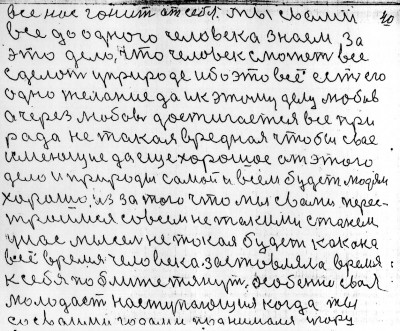 все нас гонит от себя. Мы своими 40
все до одного человека знаем. За
это дело, что человек сможет все
сделать у природе ибо это всё есть его
одно желание да и к этому делу любовь
а через любовь достигается все при
рода не такая вредная чтобы свае
имеющие да еще хорошое от этого
дело и природы самой и всем будет людям
хорошо, из за того что мы с вами перес-
троимся совсем не такими станем
у нас мысел не такая будет как она
всё время человека заставляла время:
к себе поближе тянут. Особенно свая
молодает наступающия когда ты
со своими годами пранимался у гору